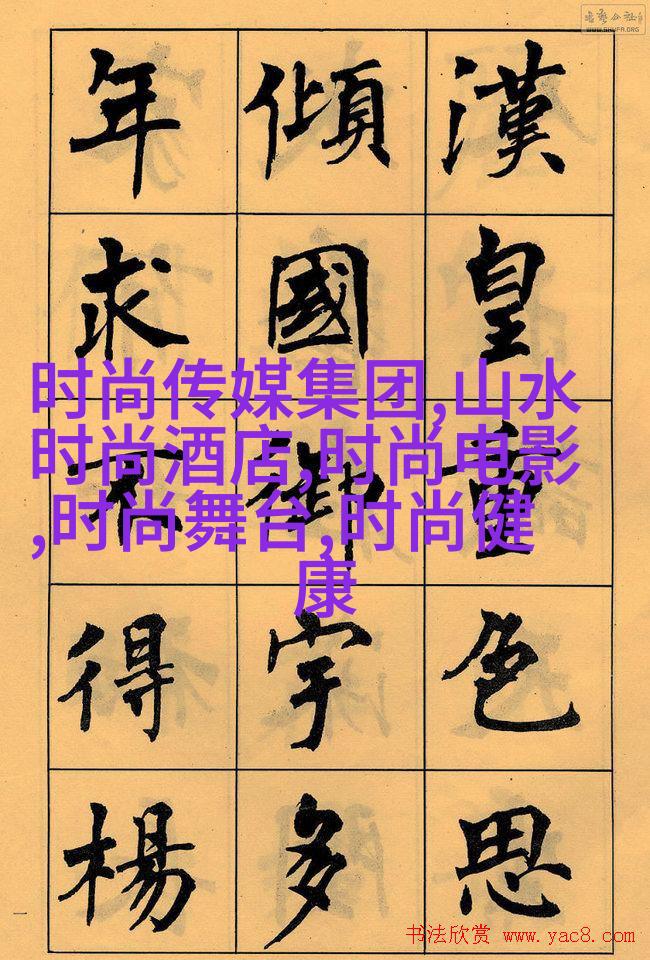 漢皇重色思
傾國御宇多
年求不得楊
时尚传媒集团,山水
时尚酒店,时尚电影
,时尚舞台,时尚健
康
WWW.SHUFA.ORG
一
书法欣赏 www.yac8.com